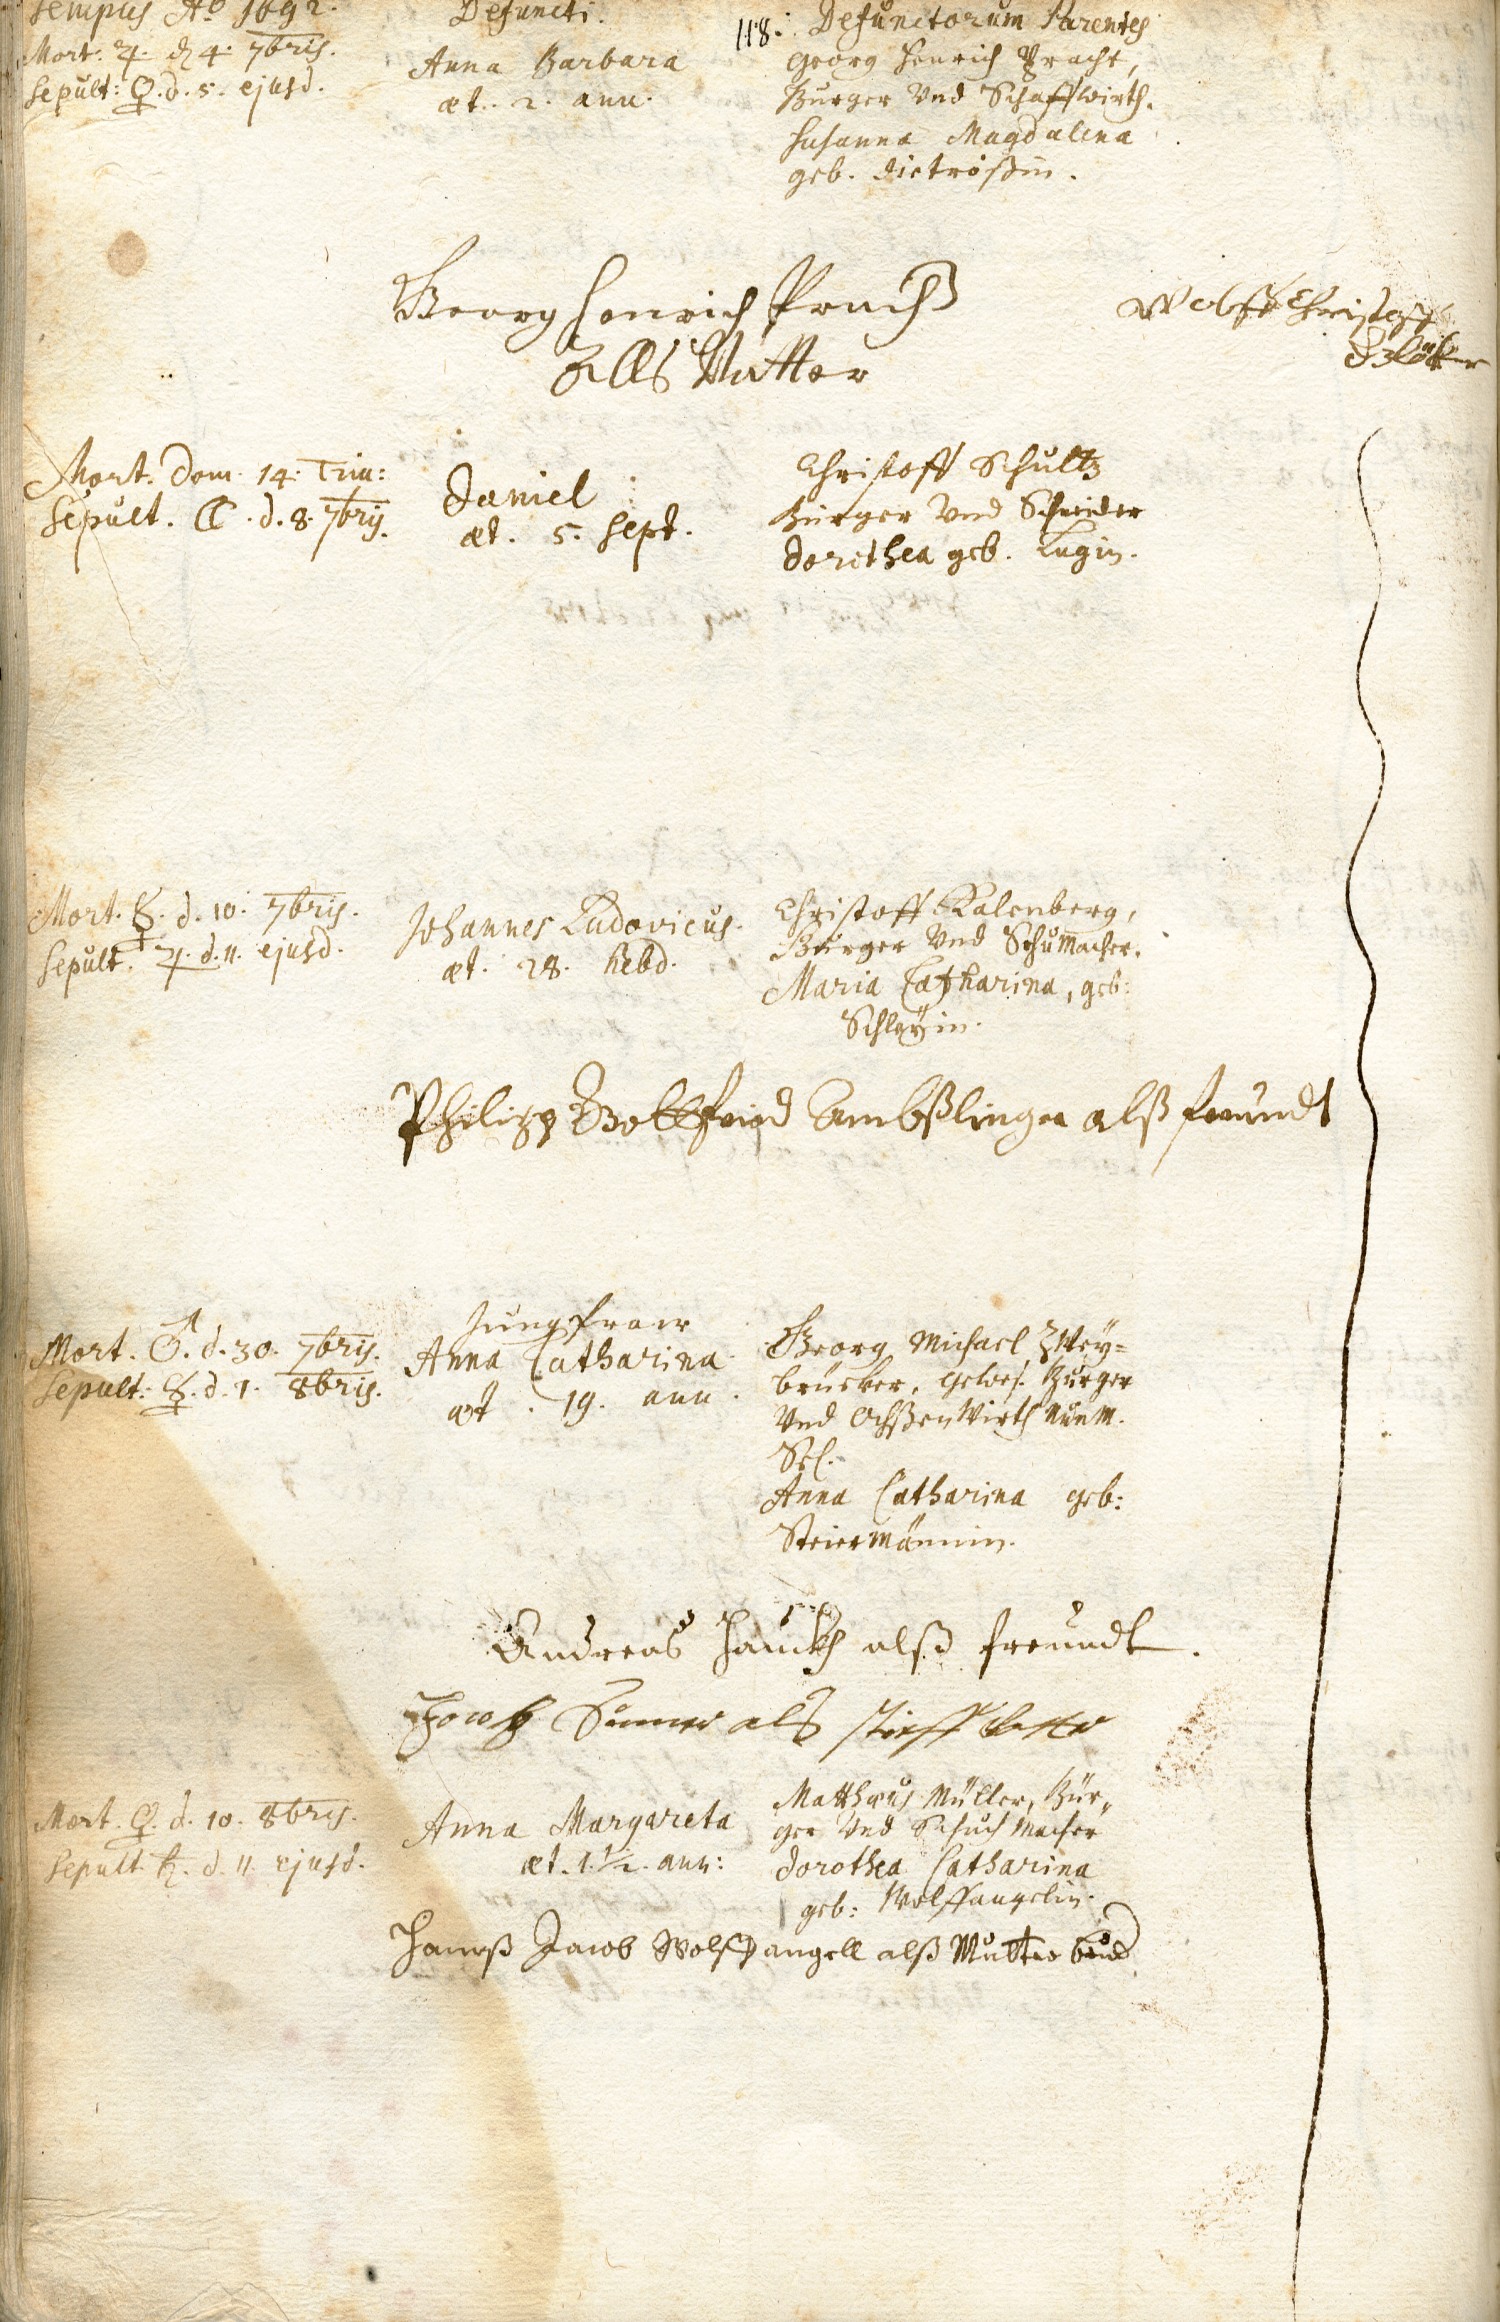 Tempus Aō 1692.
Defuncti.
118.
Defunctorum Parentes
Mort: ♃. d 4. 7bris.
Sepult: ♀. d. 5. ejusd.
Anna Barbara
æt. 2. ann.
Georg Henrich Pracht,
Burger Vnd Schaffwirth.
Susanna Magdalena
geb.
Georg Henrich Pracht
Alls Vatter
Wolff Christoff
Mort. Dom. 14. Trin:
Sepult. ☾. d. 8. 7bris.
Daniel
æt. 5. Sept.
Christoff Schultz
Burger Vnd Schneider
Dorothea geb. Lugin.
Mort. ☿. d. 10. 7bris.
Sepult. ♃. d. 11. ejusd.
Johannes Ludovicus.
æt. 28. hebd.
Christoff Kalenberg,
Burger Vnd Schumacher.
Maria Catharina, geb:
Schleÿin.
Philipp Gottfried Ambßlinger alß freundt
Mort. ♂. d. 30. 7bris.
Sepult: ☿. d. 1. 8bris.
Jungfraw
Anna Catharina
æt. 19. ann.
Georg Michael Zweÿ=
brücker, gewes. Burger
Vnd OchßenWirth Nunm.
Sel.
Anna Catharina geb:
Steiermännin.
Andreas Hauckh alß freundt.
Jacob als stieff Vatter
Mort. ♀. d. 10. 8bris.
Sepult ♄. d. 11. ejusd.
Anna Margareta
æt. 1 1/2. ann:
Matthæus Müller, Bür„
ger Vnd Schuchmacher
Dorothea Catharina
geb: Wolffangelin.
Hannß Jacob Wolffangell alß Mutter brud